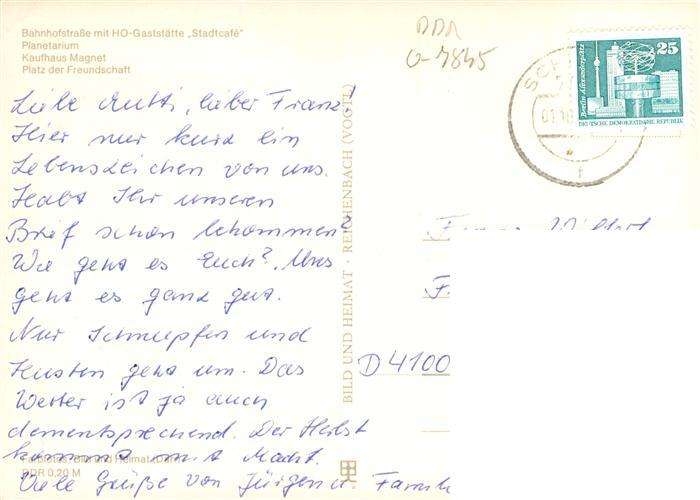 Bahnhofstraße mit HO-Gaststätte „Stadtcafé"
Planetarium
Kaufhaus Magnet
Platz der Freundschaft
DDR
Liebe Mutti, lieber Franz!
Hier nur kurz ein
Lebenszeichen von uns.
Habt Ihr unseren
Brief schon bekommen?
Wie geht es Euch? Uns
geht es ganz gut.
Nur Schnupfen und
Husten geht um. Das
Wetter ist ja auch
dementsprechend. Der Herbst
kommt mit Macht.
Viele Grüße von Jürgen u. Famili
DDR 0,20 M
BILD UND HEIMAT · REICHENBACH (VOGTL)
SCH
01.10
Berlin-Alexanderplatz
25
DEUTSCHE DEMOKRATISCHE REPUBLIK
D 4100